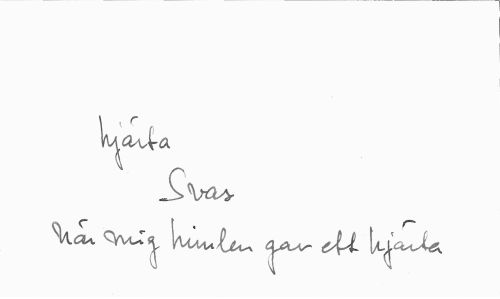 hjärta
Svas
När mig himlen gav ett hjärta